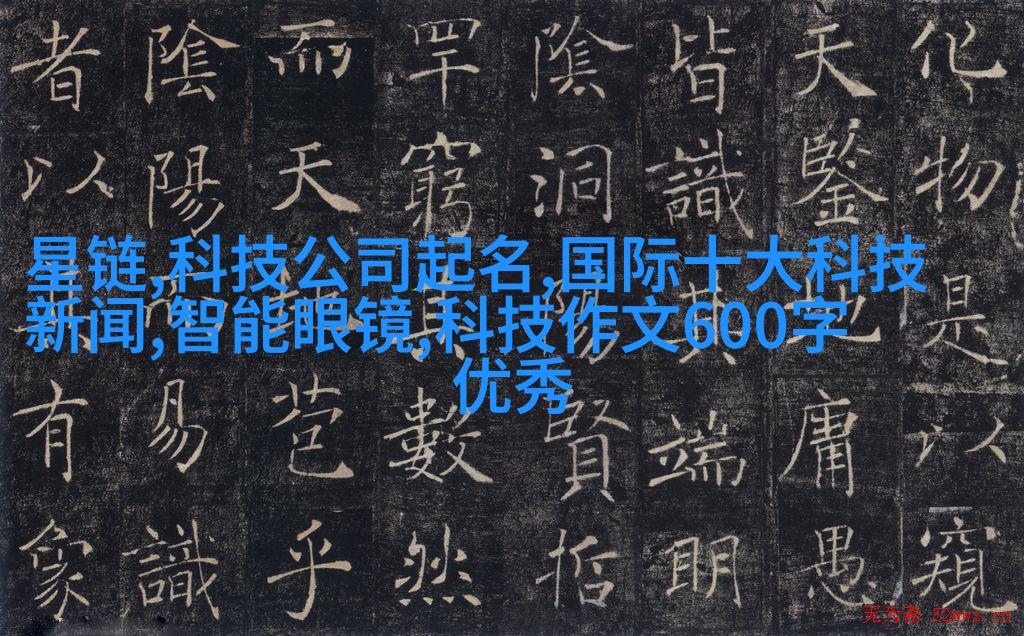 化物是以窺
天鑒地庸愚
皆識其端明
陰洞陽賢哲
罕窮其數然
而天苞乎
陰陽易識
者以有象
星链,科技公司起名,国际十大科技
新闻,智能眼镜,科技作文600字
优秀
无为斋 52wwz.cn